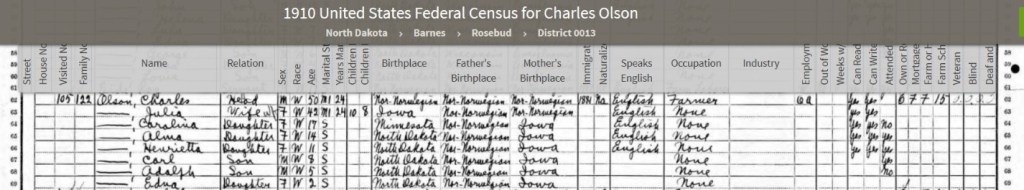 1910 United States Federal Census for Charles Olson
North Dakota › Barnes › Rosebud › District 0013
Street House No Visited N Family N Name Relation Sex Race Age Marital S Years Ma Children Children Birthplace Father's Birthplace Mother's Birthplace Immigrat Naturaliz Speaks English Occupation Industry Employm Out of W Weeks w Can Read Can Write Attended Own or R Mortgage Farm or H Farm Sch Veteran Blind Deaf and
105 122 Olson, Charles Head M W 50 M1 24 Nor-Norwegian Nor-Norwegian Nor-Norwegian 1884 Na English Farmer Yes Yes
63 Julia Wife F W 42 M1 24 10 8 Iowa Nor-Norwegian Nor-Norwegian English None Yes Yes
64 Carolina Daughter F W 17 S Minnesota Nor-Norwegian Iowa English None Yes Yes No
65 Alma Daughter F W 14 S North Dakota Nor-Norwegian Iowa English None Yes Yes Yes
66 Henrietta Daughter F W 11 S North Dakota Nor-Norwegian Iowa English None Yes Yes Yes
67 Carl Son M W 8 S North Dakota Nor-Norwegian Iowa None Yes
68 Adolph Son M W 5 S North Dakota Nor-Norwegian Iowa None No
69 Edna Daughter F W 2 S North Dakota Nor-Norwegian Iowa None